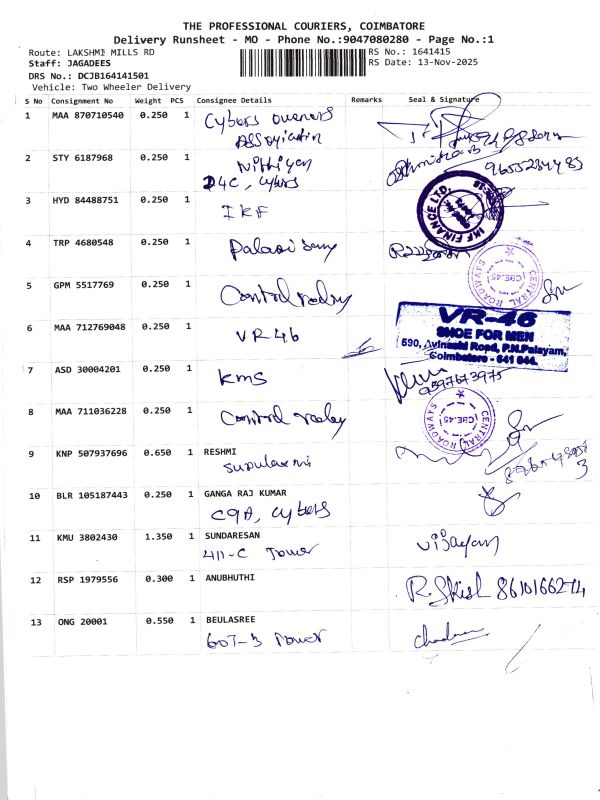 THE PROFESSIONAL COURIERS, COIMBATORE
Delivery Runsheet - MO - Phone No.:9047080280 - Page No.:1
Route: LAKSHMI MILLS RD
RS No.: 1641415
Staff: JAGADEES
RS Date: 13-Nov-2025
DRS No.: DCJB164141501
Vehicle: Two Wheeler Delivery
S No Consignment No Weight PCS Consignee Details Remarks Seal & Signature
1 MAA 870710540 0.250 1 Cybers owners
Association
2 STY 6187968 0.250 1 Nithiyan
D4C, Cybers
9655234483
3 HYD 84488751 0.250 1 IKF
IKF FINANCE LTD.
4 TRP 4680548 0.250 1 Palani Samy
5 GPM 5517769 0.250 1 Control roley
CENTRAL ROADWAYS
CBE.45
6 MAA 712769048 0.250 1 VR 46
VR-46
SHOE FOR MEN
590, Avinashi Road, P.N.Palayam,
Coimbatore - 641 044.
7 ASD 30004201 0.250 1 KMS
9597673975
8 MAA 711036228 0.250 1 Control roley
CENTRAL ROADWAYS
CBE.45
9 KNP 507937696 0.650 1 RESHMI
10 BLR 105187443 0.250 1 GANGA RAJ KUMAR
C9A, Cybers
11 KMU 3802430 1.350 1 SUNDARESAN
411-C Tower
Vijayan
12 RSP 1979556 0.300 1 ANUBHUTHI
13 ONG 20001 0.550 1 BEULASREE
607-3 Tower